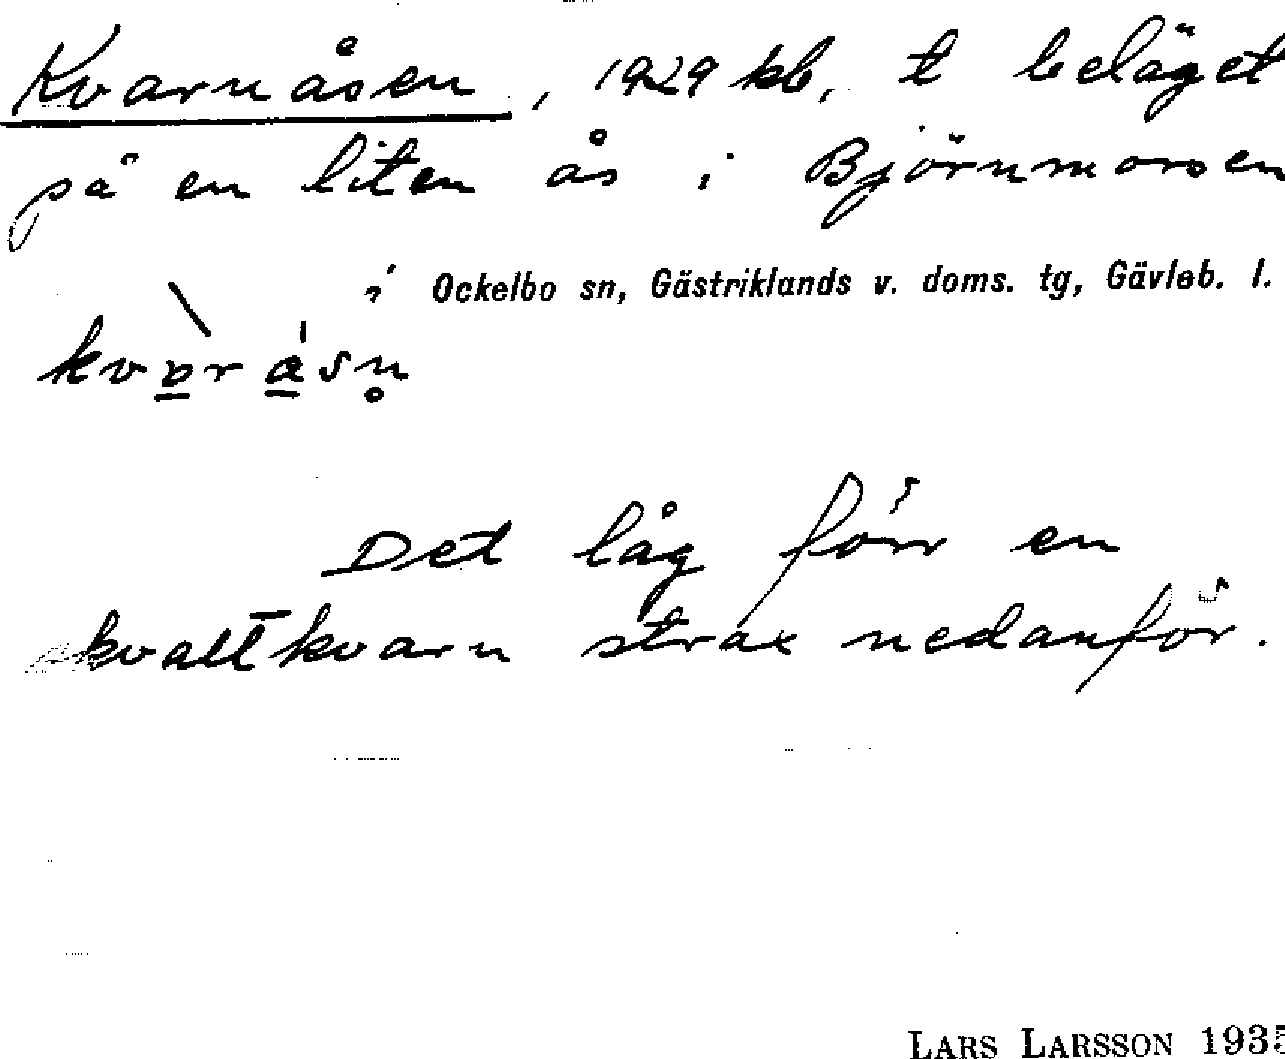 Kvarnåsen, 1929 kb, t beläget
på en liten ås i Björnmorsen
i Ockelbo sn, Gästriklands v. doms. tg, Gävleb. l.
Det låg förr en
skvaltkvarn strax nedanför.
LARS LARSSON 1935